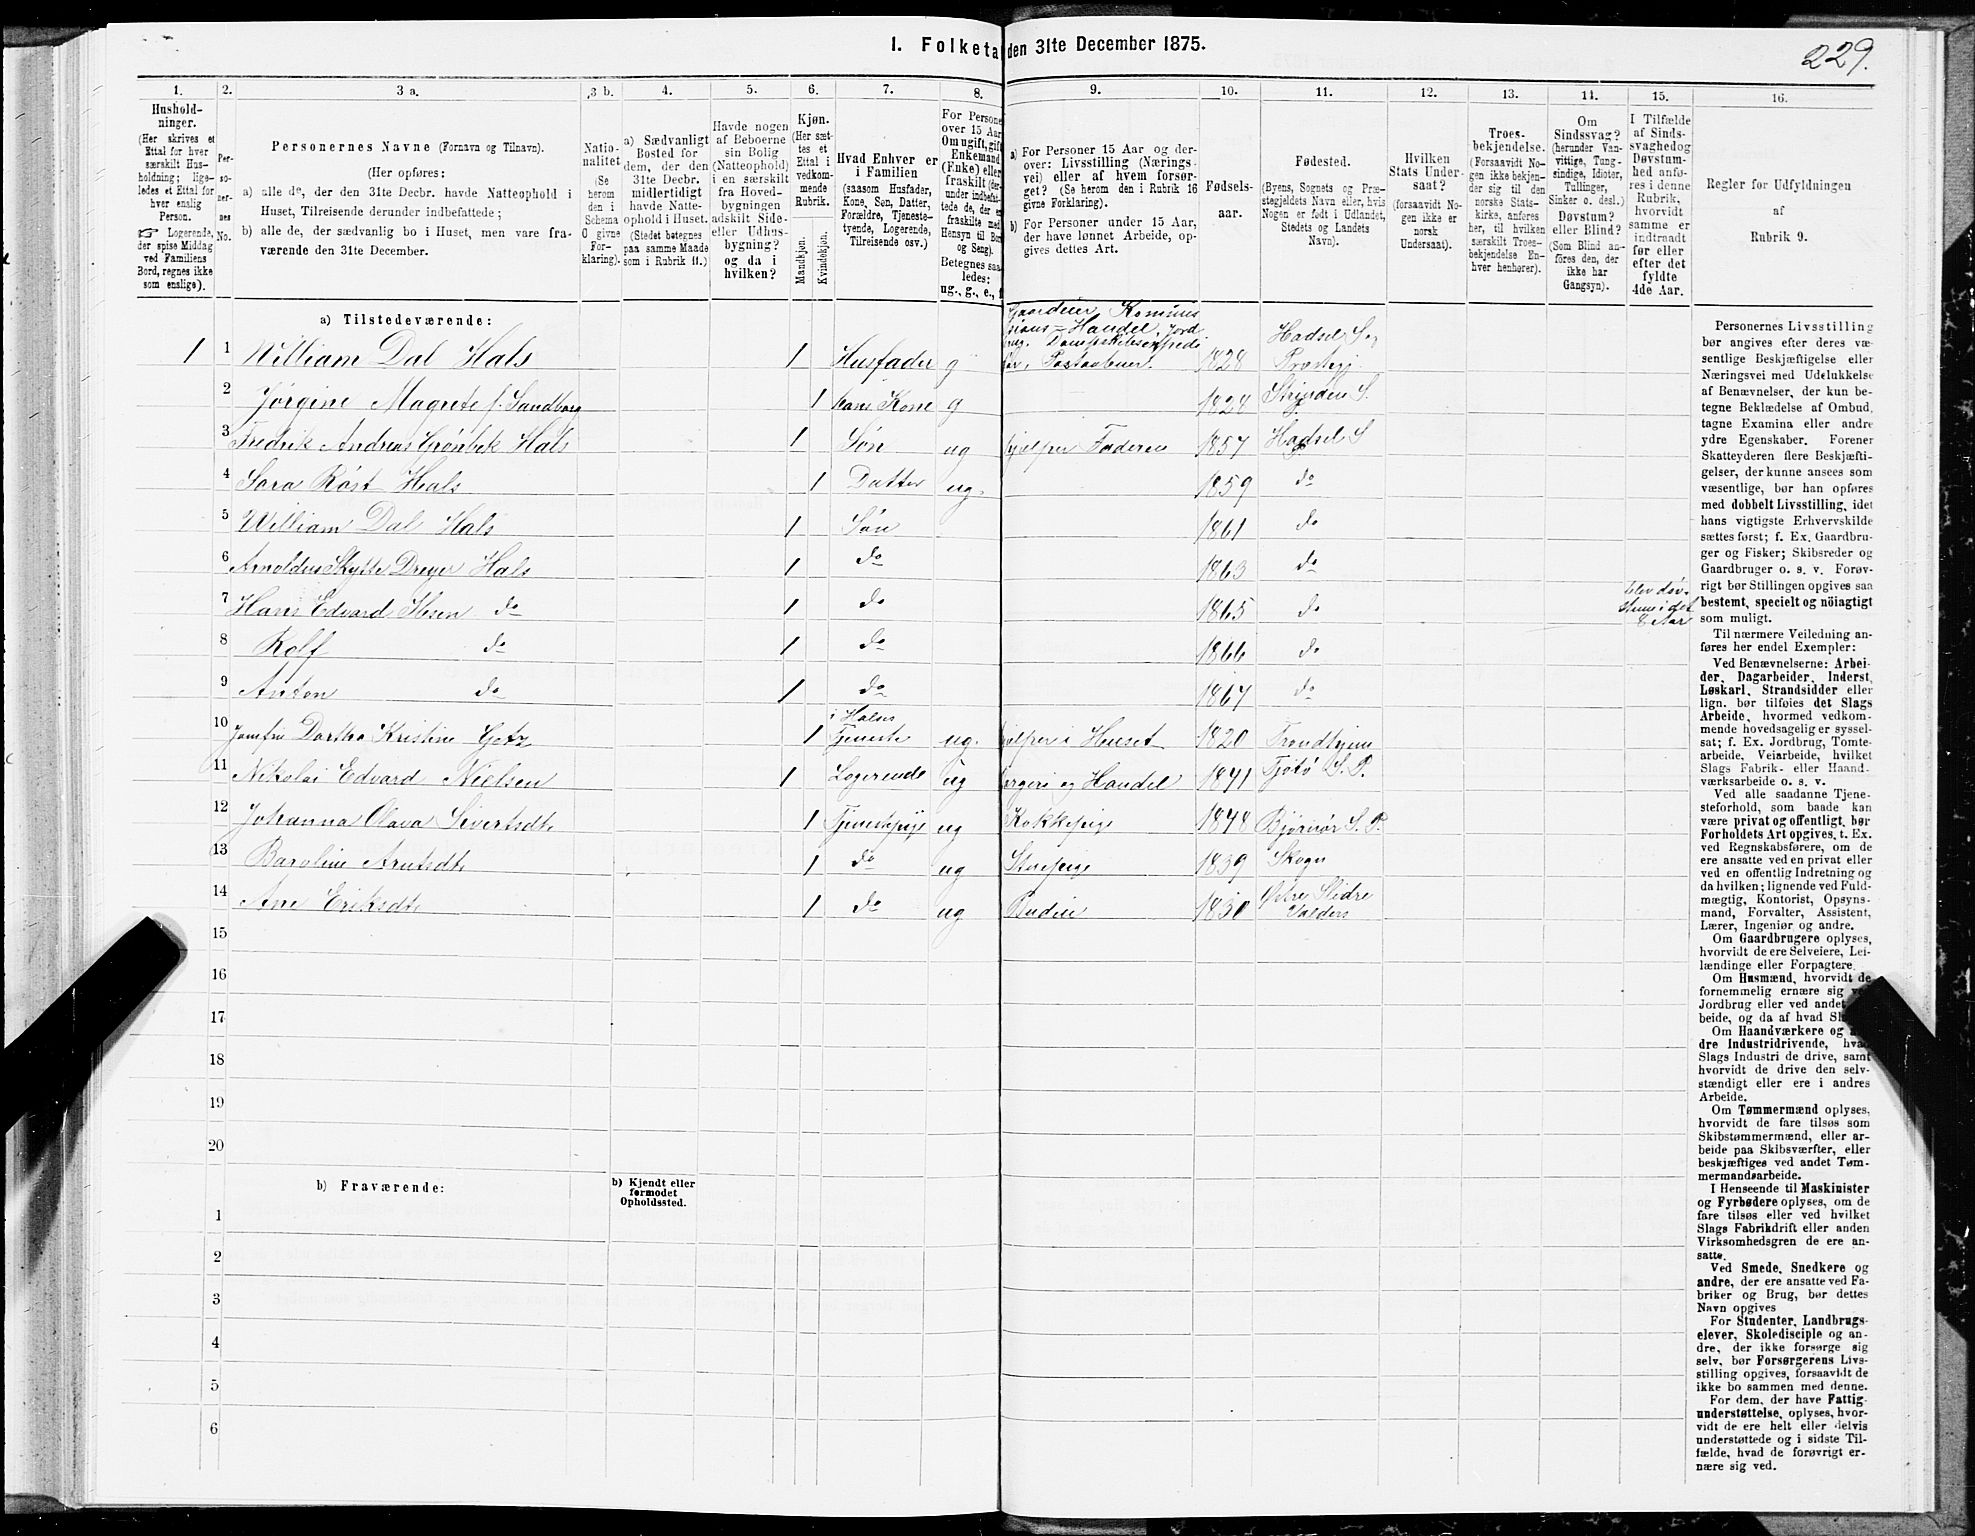 I. Folketa den 31te December 1875.
229.
1. 2. 3 a. 3 b. 4. 5. 6. 7. 8. 9. 10. 11. 12. 13. 14. 15. 16.
Hushold-
ninger.
(Her skrives et
Ettal for hver
særskilt Hus-
holdning; lige-
ledes et Ettal for
hver enslig
Person.
☞ Logerende,
der spise Middag
ved Familiens
Bord, regnes ikke
som enslige).
Per-
so-
ner-
nes
No.
Personernes Navne (Fornavn og Tilnavn).
(Her opføres:
a) alle de, der den 31te Decbr. havde Natteophold i
Huset, Tilreisende derunder indbefattede;
b) alle de, der sædvanlig bo i Huset, men vare fra-
værende den 31te December.
Natio-
nalitet
(Se
herom
den i
Schema
O givne
For-
klaring).
a) Sædvanligt
Bosted for
dem, der den
31te Decbr.
midlertidigt
havde Natte-
ophold i Huset.
(Stedet betegnes
paa samme Maade
som i Rubrik 11.)
Havde nogen
af Beboerne
sin Bolig
(Natteophold)
i en særskilt
fra Hoved-
bygningen
adskilt Side-
eller Udhus-
bygning?
og da i
hvilken?
Kjøn.
(Her sæt-
tes et
Ettal i
vedkom-
mende
Rubrik.
Mandkjøn.
Kvindekjøn.
Hvad Enhver er
i Familien
(saasom Husfader,
Kone, Søn, Datter,
Forældre, Tjeneste-
tyende, Logerende,
Tilreisende osv.)
For Persone
over 15 Aar
Om ugift, gift
Enkemand
(Enke) eller
fraskilt (der-
under indbefat-
tede de, der e
fraskilte med
Hensyn til Bo
og Seng).
Betegnes saa
ledes:
ug., g., e., f
a) For Personer 15 Aar og der-
over: Livsstilling (Nærings-
vei) eller af hvem forsør-
get? (Se herom den i Rubrik 16
givne Forklaring).
b) For Personer under 15 Aar,
der have lønnet Arbeide, op-
gives dettes Art.
Fødsels-
aar.
Fødested.
(Byens, Sognets og Præ-
stegjeldets Navn eller, hvis
Nogen er født i Udlandet,
Stedets og Landets
Navn).
Hvilken
Stats Under-
saat?
(forsaavidt No-
gen ikke er
norsk
Undersaat).
Troes-
bekjendelse.
(Forsaavidt No-
gen ikke bekjen-
der sig til den
norske Stats-
kirke, anføres
her, til hvilken
særskilt Troes-
bekjendelse En-
hver henhører).
Om
Sindssvag?
(herunder Van-
vittige, Tung-
sindige, Idioter,
Tullinger,
Sinker o. desl.)
Døvstum?
eller Blind?
(Som Blind an-
føres den, der
ikke har
Gangsyn).
I Tilfælde
af Sinds-
svaghed og
Døvstum-
hed anfø-
res i denne
Rubrik,
hvorvidt
samme er
indtraadt
før eller
efter det
fyldte
4de Aar.
Regler for Udfyldningen
af
Rubrik 9.
a) Tilstedeværende:
1 1 William Dal Hals 1 Husfader g Gaardeier Kommis
sions-Handel, Jord
brug. Dampskibsexpedi
tør, Postaabner. 1828 Hadsel S og
Præstegj.
2 Jørgine Magrete f. Sandborg 1 hans Kone g 1828 Strinden S.
3 Fredrik Andreas Grønbek Hals 1 Søn ug hjælper Faderen 1857 Hadsel S
4 Sara Røst Hals 1 Datter ug. 1859 do
5 William Dal Hals 1 Søn 1861 do
6 Arnoldus Skytte Dreyer Hals 1 do 1863 do
7 Hans Edvard Ibsen do 1 do 1865 do blev døv-
stum i det
8 Aar
8 Rolf do 1 do 1866 do
9 Anton do 1 do 1867 do
10 Jomfru Dorthea Kristine Getz 1 i Halses
Tjeneste ug. hjælper i Huset 1820 Trondhjem
11 Nikolai Edvard Nielsen 1 Logerende ug Borgeri og Handel 1841 Tjøtø S. P.
12 Johanna Olava Sivertsdt. 1 Tjenestepige ug Kokkepige 1848 Bjørnør S. P.
13 Baroline Arntsdt. 1 do ug Stuepige 1839 Skogn
14 Ane Eriksdt. 1 do ug Budeie 1830 Østre Slidre
Valders
15
16
17
18
19
20
b) Fraværende:
b) Kjendt eller
formodet
Opholdssted.
1
2
3
4
5
6
Personernes Livsstilling
bør angives efter deres væ-
sentlige Beskjæftigelse eller
Næringsvei med Udelukkelse
af Benævnelser, der kun be-
tegne Beklædelse af Ombud,
tagne Examina eller andre
ydre Egenskaber. Forener
Skatteyderen flere Beskjæfti-
gelser, der kunne ansees som
væsentlige, bør han opføres
med dobbelt Livsstilling, idet
hans vigtigste Erhvervskilde
sættes først; f. Ex. Gaardbru-
ger og Fisker; Skibsreder og
Gaardbruger o. s. v. Forøv-
rigt bør Stillingen opgives saa
bestemt, specielt og nöiagtigt
som muligt.
Til nærmere Veiledning an-
føres her endel Exempler:
Ved Benævnelserne: Arbei-
der, Dagarbeider, Inderst,
Løskarl, Strandsidder eller
lign. bør tilføies det Slags
Arbeide, hvormed vedkom-
mende hovedsagelig er syssel-
sat; f. Ex. Jordbrug, Tomte-
arbeide, Veiarbeide, hvilket
Slags Fabrik- eller Haand-
værksarbeide o. s. v.
Ved alle saadanne Tjene-
steforhold, som baade kan
være privat og offentligt, bør
Forholdets Art opgives, t. Ex.
ved Regnskabsførere, om de
ere ansatte ved en privat eller
ved en offentlig Indretning og
da hvilken; lignende ved Fuld-
mægtig, Kontorist, Opsyns-
mand, Forvalter, Assistent,
Lærer, Ingeniør og andre.
Om Gaardbrugere oplyses,
hvorvidt de ere Selveiere, Lei-
lændinge eller Forpagtere.
Om Husmænd, hvorvidt de
fornemmelig ernære sig ved
Jordbrug eller ved andet
beide, og da af hvad Sl
Om Haandværkere og
dre Industridrivende, hvad
Slags Industri de drive, samt
hvorvidt de drive den selv-
stændigt eller ere i andres
Arbeide.
Om Tømmermænd oplyses,
hvorvidt de fare tilsøs som
Skibstømmermænd, eller ar-
beide paa Skibsværfter, eller
beskjæftiges ved andet Tøm-
mermandsarbeide.
I Henseende til Maskinister
og Fyrbødere oplyses, om de
fare tilsøs eller ved hvilket
Slags Fabrikdrift eller anden
Virksomhedsgren de ere an-
satte.
Ved Smede, Snedkere og
andre, der ere ansatte ved Fa-
briker og Brug, bør dettes
Navn opgives
For Studenter, Landbrugs-
elever, Skoledisciple og an-
dre, der ikke forsørge sig
selv, bør Forsørgerens Livs-
stilling opgives, forsaavidt de
ikke bo sammen med denne.
For dem, der have Fattig-
understøttelse, oplyses, hvor-
vidt de ere helt eller delvis
understøttede og i sidste Til-
fælde, hvad de forøvrigt er-
nære sig ved.